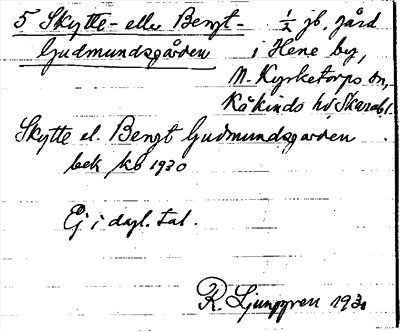 5 Skytte- eller Bengt- 1/2 jb. gård
Gudmundsgården i Hene by,
N. Kyrketorps sn,
Kåkinds hd Skarab.l.
Skytte el. Bengt Gudmundsgården
bek kb 1930
Ej i dagl. tal.
R. Ljunggren 1930